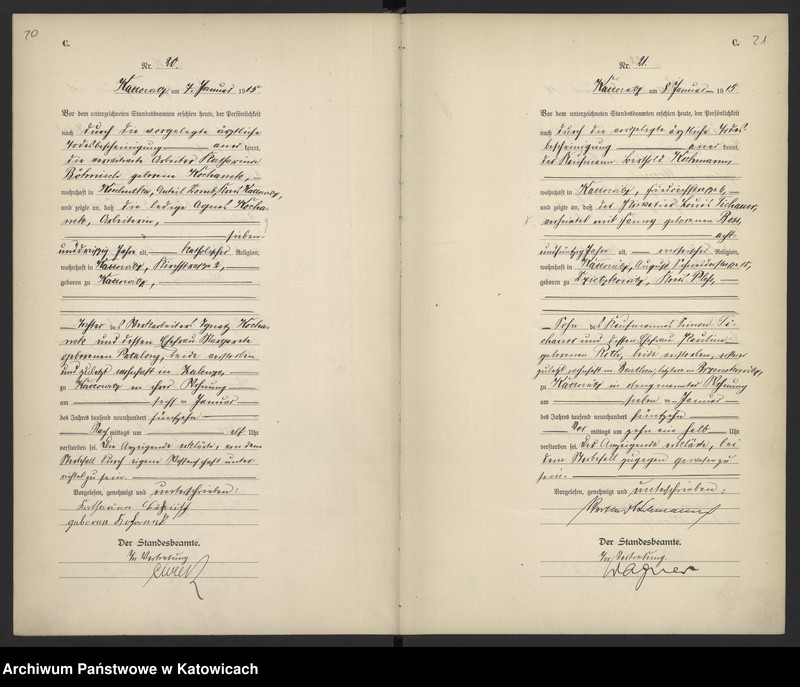 20
C.
Nr. 20.
Kattowitz am 7. Januar 1915
Vor dem unterzeichneten Standesbeamten erschien heute, der Persönlichkeit
nach durch die vorgelegte ärztliche
Todesbescheinigung anerkannt,
die verwitwete Arbeiter Katharina
geborene Kochanek,
wohnhaft in
und zeigte an, daß die ledige Agnes Kocha-
nek, Arbeiterin,
sieben-
unddreißig Jahre alt, katholischer Religion,
wohnhaft in Kattowitz, 2,
geboren zu Kattowitz,
Tochter des Ignatz Kocha-
nek und dessen Ehefrau Margarete
geborenen, beide verstorben
und zuletzt wohnhaft in Zalenze,
zu Kattowitz in ihrer Wohnung
am sechsten Januar
des Jahres tausend neunhundert fünfzehn
Nachmittags um elf Uhr
verstorben sei. Die Anzeigende erklärte, von dem
Sterbefall durch eigene Wissenschaft unter-
richtet zu sein.
Vorgelesen, genehmigt und unterschrieben:
Katharina
geboren
Der Standesbeamte.
In Vertretung
C.
21
Nr. 21.
Kattowitz am 8. Januar 1915
Vor dem unterzeichneten Standesbeamten erschien heute, der Persönlichkeit
nach durch die vorgelegte ärztliche Todes-
bescheinigung anerkannt,
der Kaufmann Berthold
wohnhaft in Kattowitz, 6,
und zeigte an, daß der Louis Sichauer,
verheiratet mit Fanny geborenen
acht-
undfünfzig Jahre alt, mosaischer Religion,
wohnhaft in Kattowitz, August Schneiderstraße
geboren zu, Kreis Pleß,
Sohn des Kaufmannes Simon Si-
chauer und dessen Ehefrau Pauline
geborenen, beide verstorben, erster
zuletzt wohnhaft in Beuthen, letztere in
zu Kattowitz in Wohnung
am sieben Januar
des Jahres tausend neunhundert fünfzehn
Vormittags um zehn ein halb Uhr
verstorben sei. Der Anzeigende erklärte, bei
dem Sterbefall zugegen gewesen zu
sein.
Vorgelesen, genehmigt und unterschrieben:
Der Standesbeamte.
In Vertretung.
Wagner
Archiwum Państwowe w Katowicach